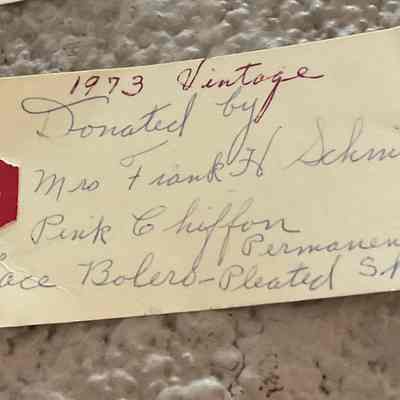 1973 Vintage
Donated by
Mrs Frank H Schmi
Pink Chiffon
Permanen
ace Bolero-Pleated Sk